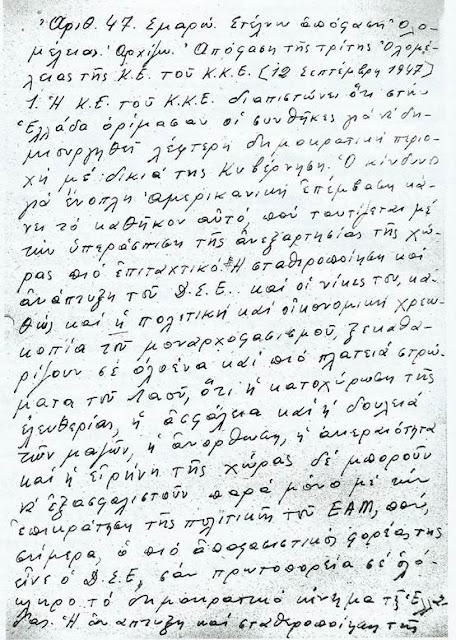 Ἀριθ. 47. Σμαρώ. Στέλνω ἀπόφαση Ὁλο-
μέλειας. Ἀρχίζω. Ἀπόφαση τῆς τρίτης Ὁλομέ-
λειας τῆς Κ.Ε. τοῦ Κ.Κ.Ε. (12 Σεπτέμβρη 1947)
1. Ἡ Κ.Ε. τοῦ Κ.Κ.Ε. διαπιστώνει ὅτι στήν
Ἑλλάδα ὁρίμασαν οἱ συνθῆκες γιά νά δη-
μιουργηθῆ λέφτερη δημοκρατική περιο-
χή μέ δικιά της Κυβέρνηση. Ὁ κίνδυνος
γιά ἔνοπλη ἀμερικανική ἐπέμβαση κά-
νει τό καθῆκον αὐτό, πού ταυτίζεται μέ
τήν ὑπεράσπιση τῆς ἀνεξαρτησίας τῆς χώ-
ρας πιό ἐπιταχτικό. Ἡ σταθεροποίηση καί
ἀνάπτυξη τοῦ Δ.Σ.Ε. καί οἱ νίκες του, κα-
θώς καί ἡ πολιτική καί οἰκονομική χρεω-
κοπία τοῦ μοναρχοφασισμοῦ, ξεκαθα-
ρίζουν σέ ὁλοένα καί πιό πλατειά στρώ-
ματα τοῦ λαοῦ, ὅτι ἡ κατοχύρωση τῆς
ἐλευθερίας, ἡ ἀσφάλεια καί ἡ δουλειά
τῶν μαζῶν, ἡ ἀνόρθωση, ἡ ἀκεραιότητα
καί ἡ εἰρήνη τῆς χώρας δέ μποροῦν
νά ἐξασφαλιστοῦν παρά μόνο μέ τήν
ἐπικράτηση τῆς πολιτικῆς τοῦ ΕΑΜ, πού,
σήμερα, ὁ πιό ἀποφασιστικός φορέας της
εἶνε ὁ Δ.Σ.Ε, σάν πρωτοπορεία σέ ὁλό-
κληρο τό δημοκρατικό κίνημα τῆς Ἑλλά-
δας. Ἡ ἀνάπτυξη καί σταθεροποίηση τῆς